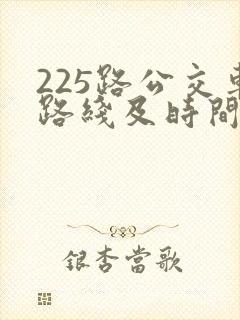 225路公交車
路綫及時間
銀杏當歌